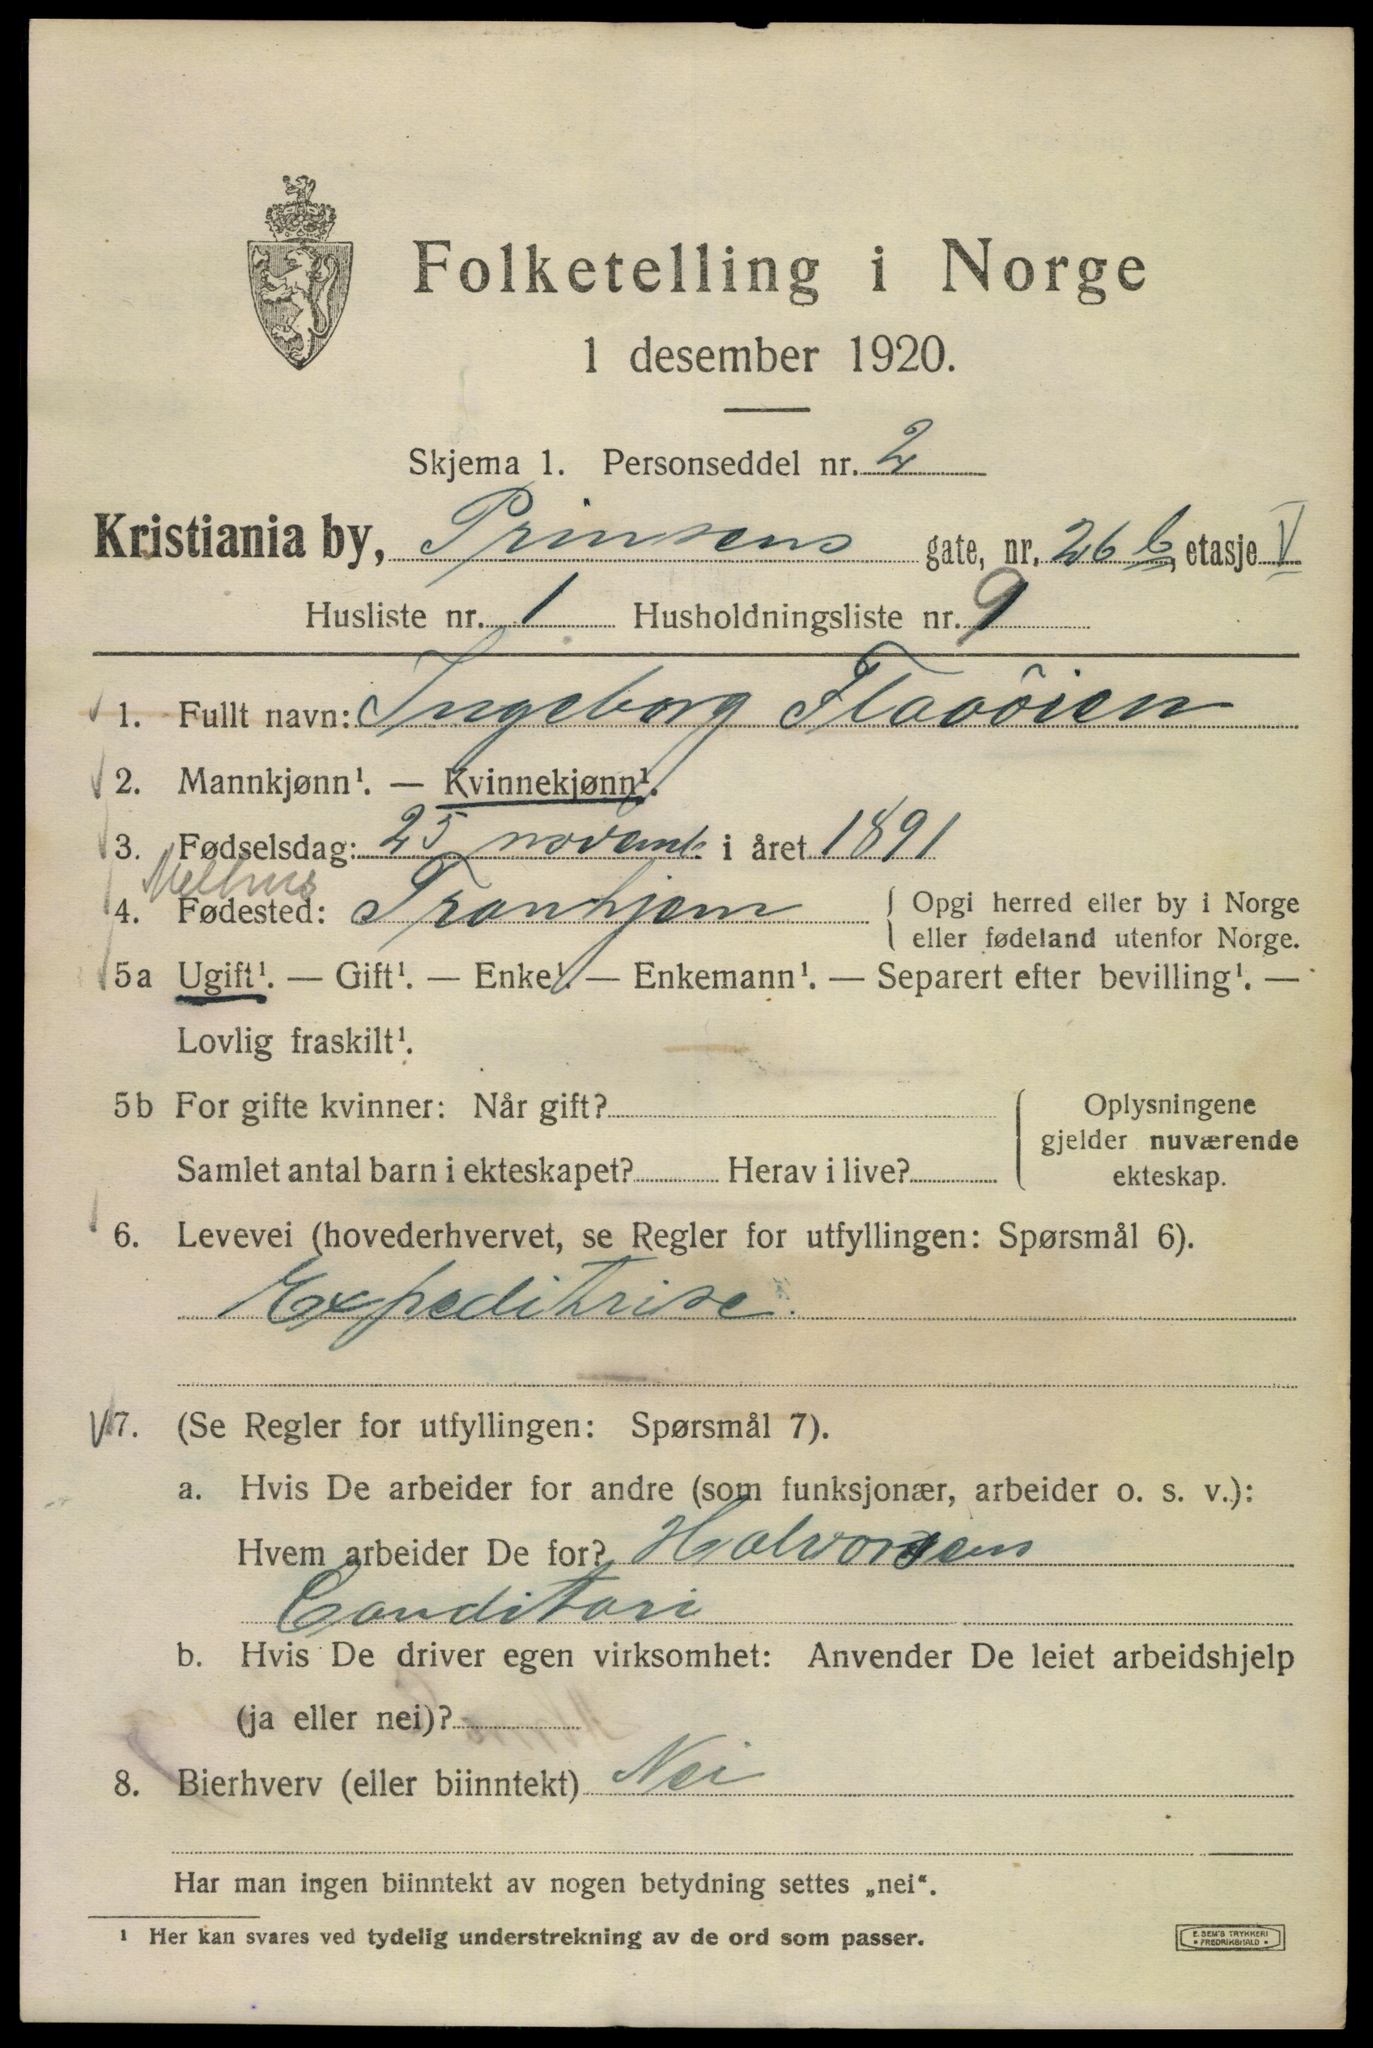 Folketelling i Norge
1 desember 1920.
Skjema 1. Personseddel nr. 2
Kristiania by, Prinsens gate, nr. 26 b, etasje V
Husliste nr. 1 Husholdningsliste nr. 9
1. Fullt navn: Ingeborg Flaaöien
2. Mannkjønn¹. — Kvinnekjønn¹.
3. Fødselsdag: 25 novemb. i året 1891
Melhus
4. Fødested: Tronhjem { Opgi herred eller by i Norge
eller fødeland utenfor Norge.
5a Ugift¹. — Gift¹. — Enke¹. — Enkemann¹. — Separert efter bevilling¹. —
Lovlig fraskilt¹.
5b For gifte kvinner: Når gift? { Oplysningene
gjelder nuværende
Samlet antal barn i ekteskapet? Herav i live? ekteskap.
6. Levevei (hovederhvervet, se Regler for utfyllingen: Spørsmål 6).
Expeditrise.
7. (Se Regler for utfyllingen: Spørsmål 7).
a. Hvis De arbeider for andre (som funksjonær, arbeider o. s. v.):
Hvem arbeider De for? Halvorsens
Conditori
b. Hvis De driver egen virksomhet: Anvender De leiet arbeidshjelp
(ja eller nei)?
8. Bierhverv (eller biinntekt) Nei
Har man ingen biinntekt av nogen betydning settes „nei“.
¹ Her kan svares ved tydelig understrekning av de ord som passer.
E. SEM'S TRYKKERI
• FREDRIKSHALD •